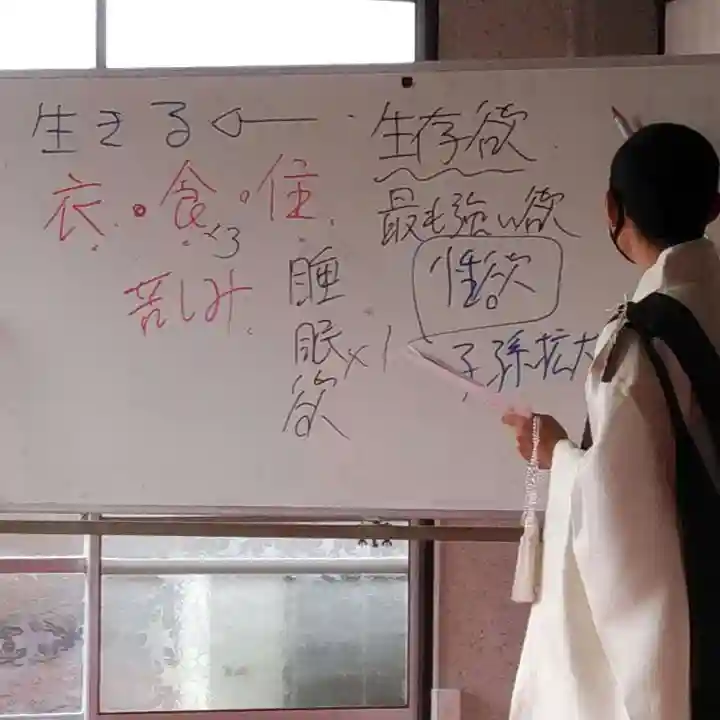 生きる ← 生存欲
衣・食・住
×3
最も強い欲
苦しみ
睡眠欲 ×1
性欲
子孫拡大